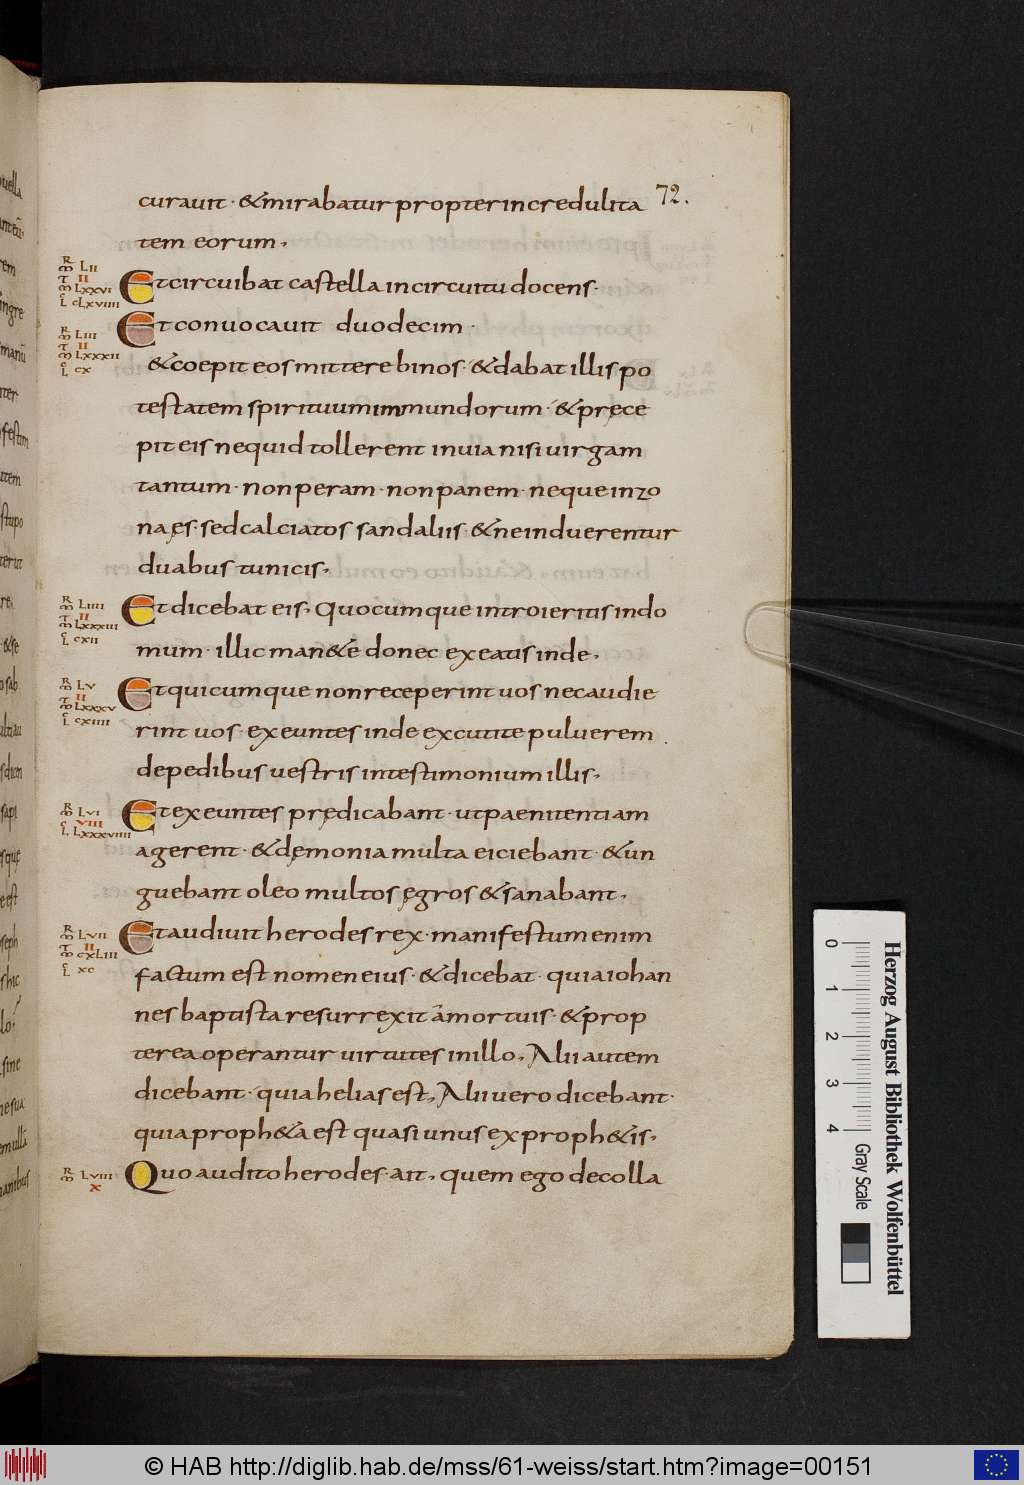 72.
curauit · & mirabatur propter incredulita
tem eorum.
Et circuibat castella in circuitu docens·
Et conuocauit duodecim ·
& coepit eos mittere binos· & dabat illis po
testatem spirituum inmundorum · & pręce
pit eis nequid tollerent in uia nisi uirgam
tantum · non peram · non panem · neque in zo
na ęs· sed calciatos sandaliis · & ne induerentur
duabus tunicis.
Et dicebat eis. Quocumque introieritis in do
mum · illic man&e donec exeatis inde.
Et quicumque non receperint uos nec audie
rint uos · exeuntes inde excutite puluerem
de pedibus uestris in testimonium illis.
Et exeuntes prędicabant · ut paenitentiam
agerent · & dęmonia multa eiciebant · & un
guebant oleo multos ęgros & sanabant.
Et audiuit herodes rex · manifestum enim
factum est nomen eius · & dicebat · quia iohan
nes baptista resurrexit a mortuis · & prop
terea operantur uirtutes in illo. Alii autem
dicebant · quia helias est. Alii uero dicebant·
quia proph&a est quasi unus ex proph&is.
Quo audito herodes· ait. quem ego decolla
R
LII
II
LXXVI
CLXVIIII
R
LIII
II
LXXXII
CX
R
LIIII
II
LXXXIII
CXII
R
LV
II
LXXXV
CXIIII
R
LVI
VIII
LXXXVIIII
R
LVII
II
CXLIII
XC
R
LVIII
X
0 1 2 3 4
Gray Scale
Herzog August Bibliothek Wolfenbüttel
© HAB http://diglib.hab.de/mss/61-weiss/start.htm?image=00151